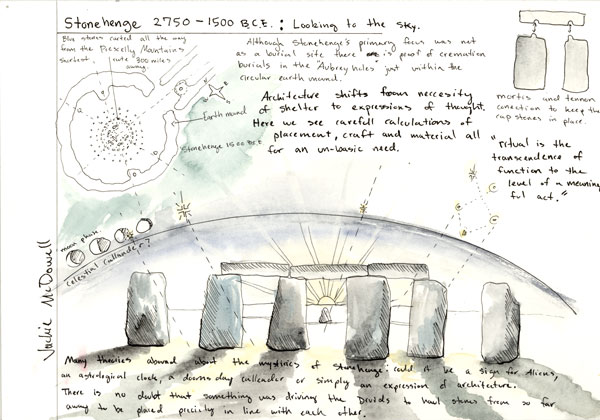 Stonehenge 2750 – 1500 B.C.E. : Looking to the sky.
Blue stones carted all the way
from the Prescelly Mountains
shortest route 300 miles
away.
Although Stonehenge's primary focus was not
as a burial site there is proof of cremation
burials in the "Aubrey holes" just within the
circular earth mound.
Architecture shifts from neccesity
of shelter to expressions of thought.
Here we see carefull calculations of
placement, craft and material all
for an un-basic need.
Earth mound
Stonehenge 1500 B.C.E
mortis and tennon
conection to keep the
cap stones in place.
"ritual is the
transcendence of
function to the
level of a meaning
ful act."
moon phase.
celestial callander?
Jackie McDowell
Many theories abound about the mystiries of Stonehenge: could it be a sign for Aliens,
an astrological clock, a doomsday callender or simply an expression of architecture.
There is no doubt that something was driving the Druids to haul stones from so far
away to be placed precisly in line with each other.